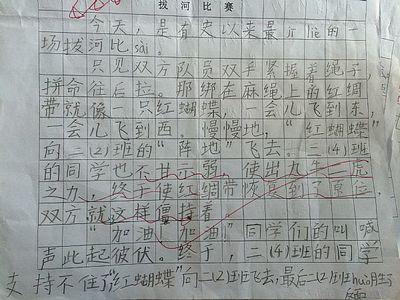 拔河比赛
今天，是有史以来最jī liè的一
场拔河比sài。
只见双方队员双手紧握着绳子，
拼命往后拉。那绑在麻绳上的红绸
带就像一只红蝴蝶，一会儿飞到东，
一会儿飞到西。慢慢地，“红蝴蝶”
向二(2)班的“阵地”飞去。二(4)班
的同学也不甘示弱，使出九牛二虎
之力，终于使红绸带恢复到了原位，
双方就这样僵持着
“加油！加油！”同学们的叫喊
声此起彼伏。终于，二(4)班的同学
支持不住了“红蝴蝶”向二(2)班飞去，最后二(2)班huò胜了